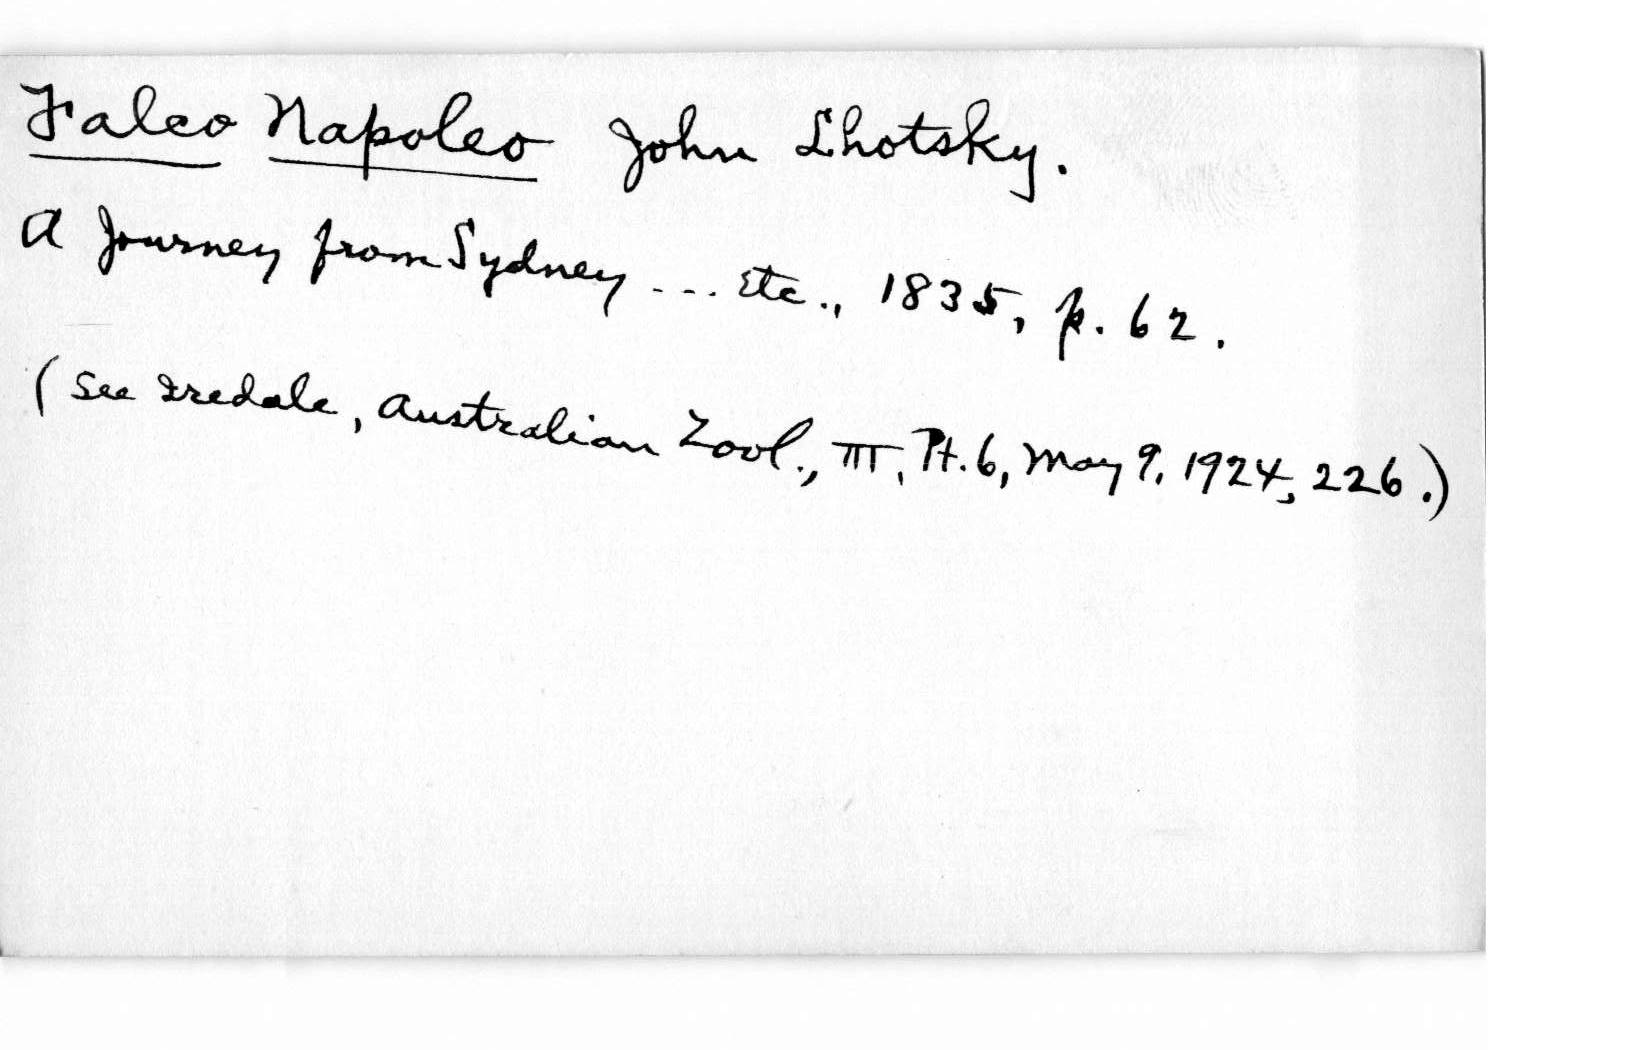 Falco Napoleo John Lhotsky.
A Journey from Sydney ... etc., 1835, p. 62.
(See Iredale, Australian Zool., III, Pt. 6, May 9, 1924, 226.)